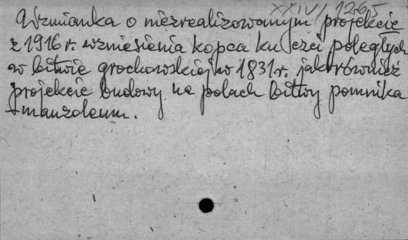 XXIV/1265
Wzmianka o niezrealizowanym projekcie
z 1916 r. wzniesienia kopca ku czci poległych
w bitwie grochowskiej w 1831 r. jak również
projekcie budowy na polach bitwy pomnika
-mauzoleum.